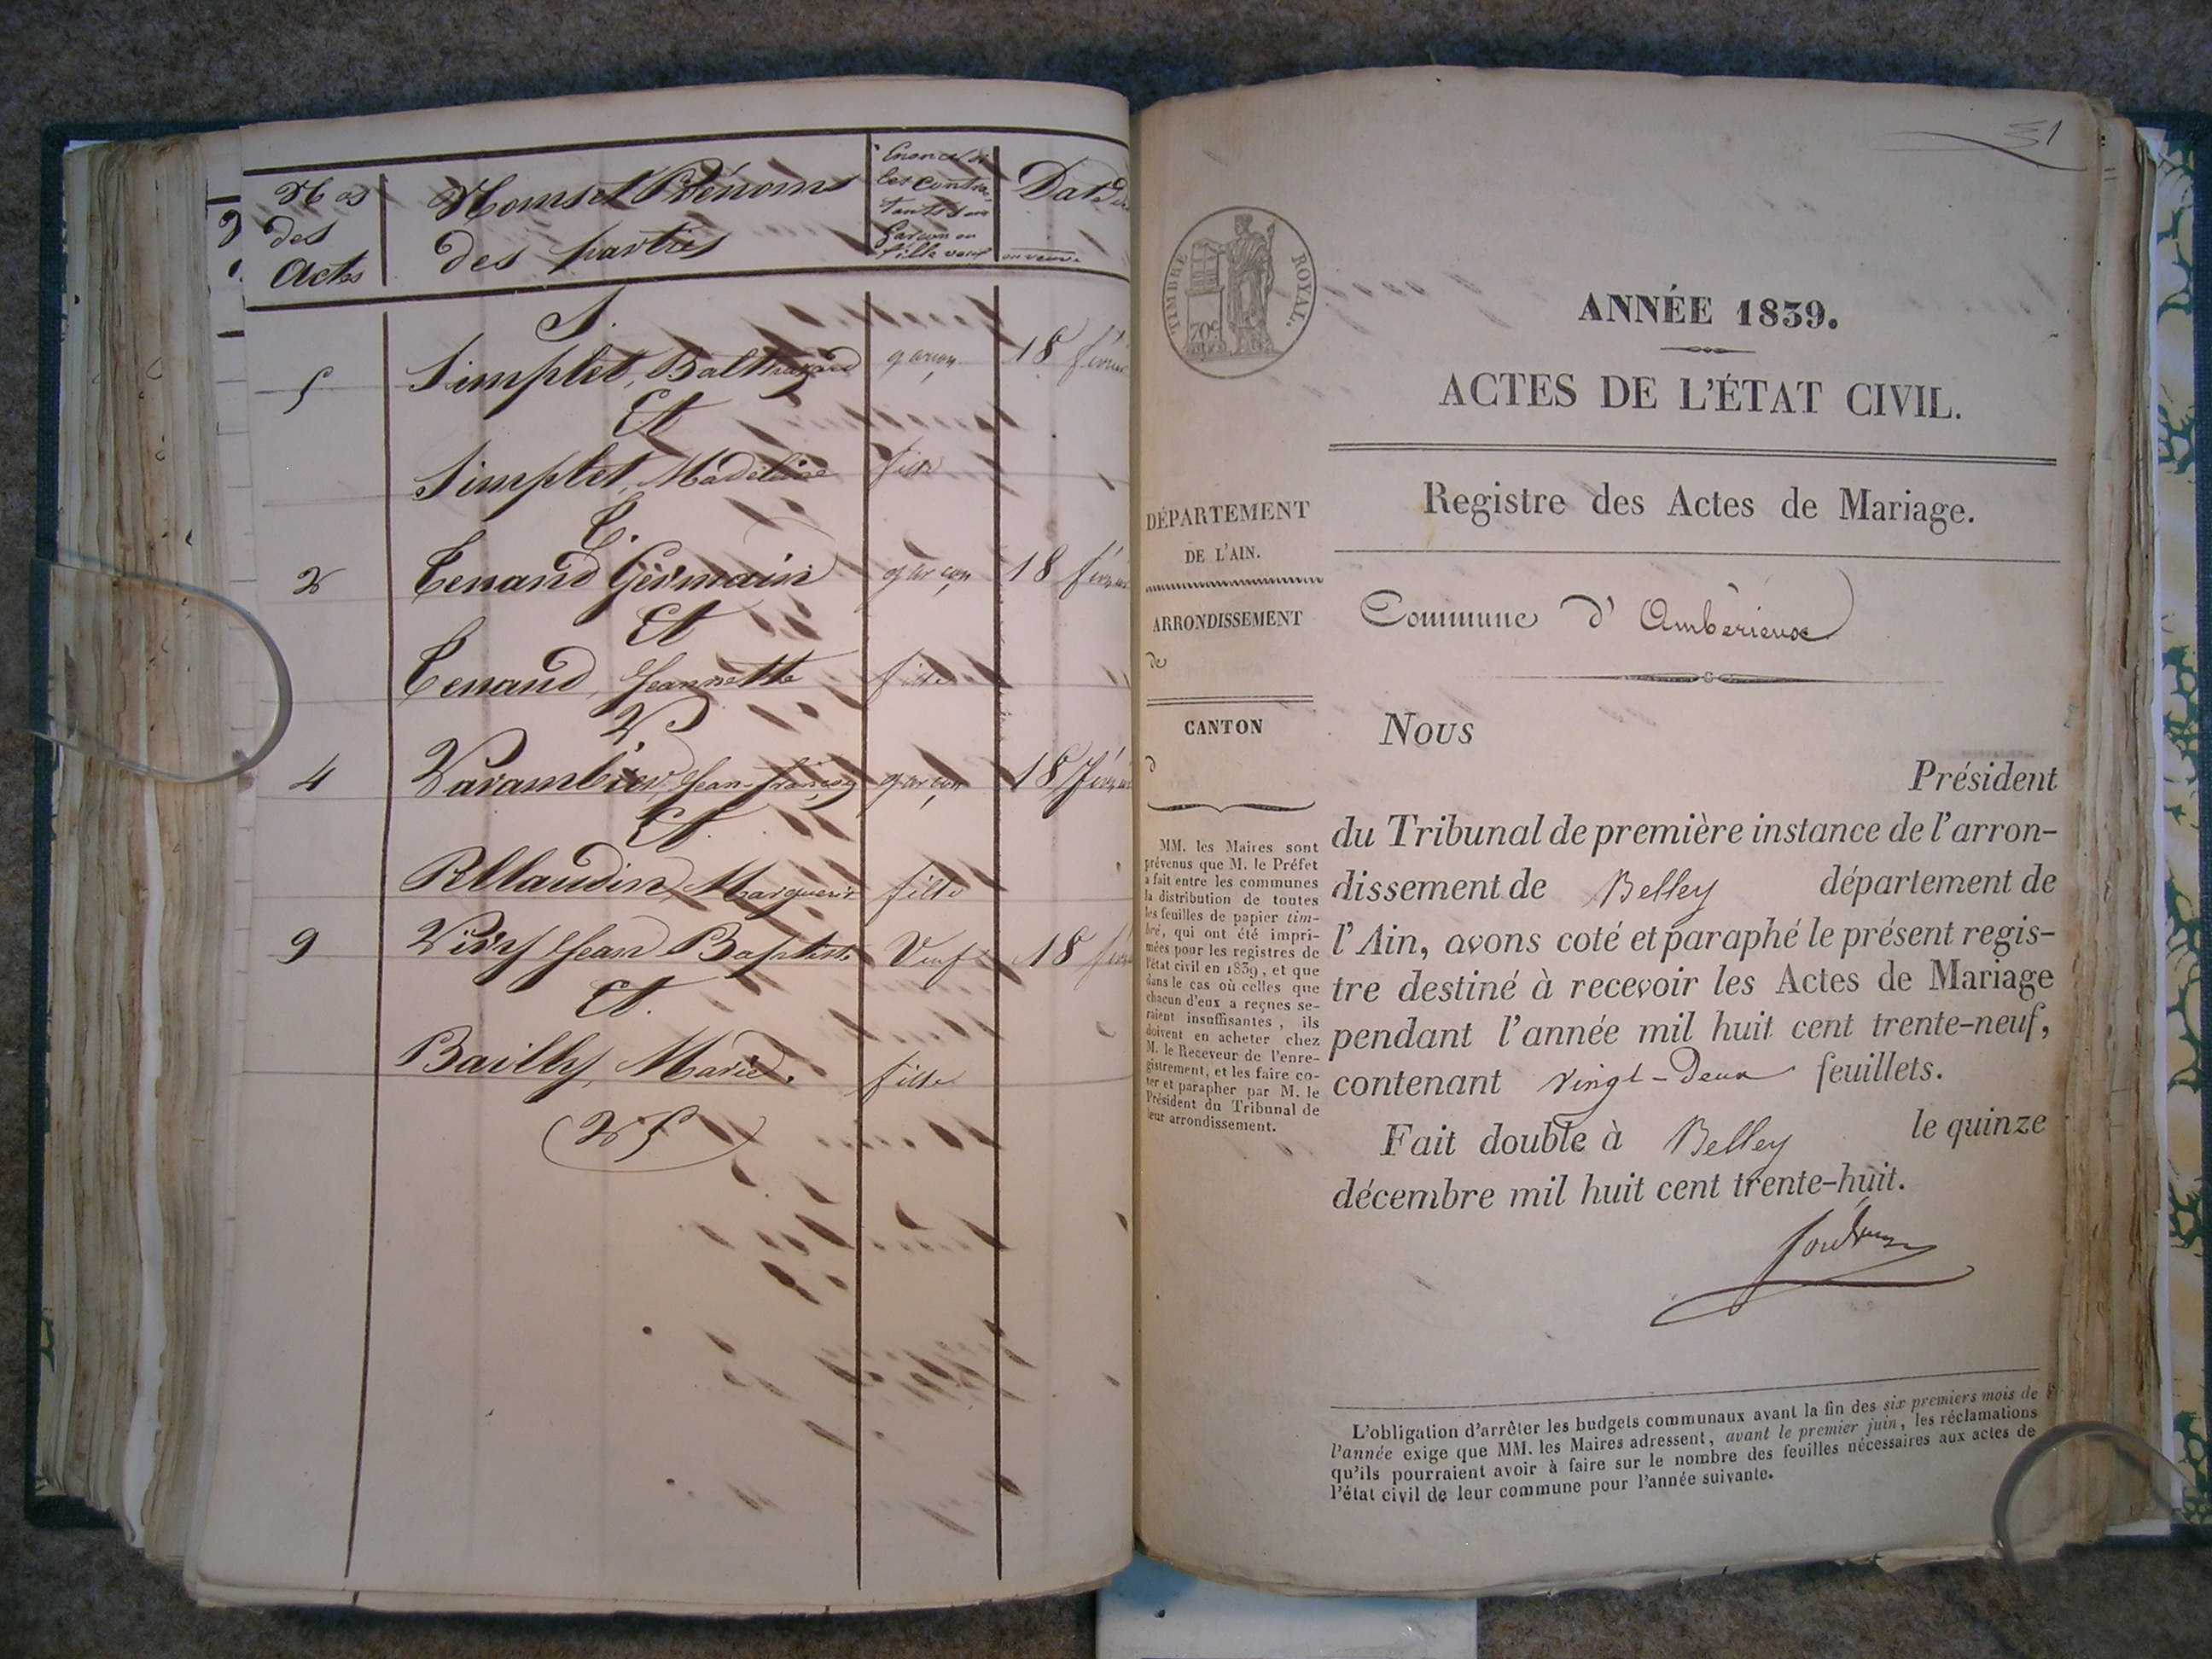 Nos
des
Actes
Noms et Prénoms
des parties
Enoncé si
les contrac-
tants sont
garçon ou
fille veuf
ou veuve
Dat
S.
5 Simplet, Balthazard garçon 18 février
Et
Simplet, Madeleine fille
T.
2 Tenand Germain garçon 18 février
Et
Tenand, Jeannette fille
V
4 Varambier, Jean-françois garçon 18 février
Et.
Marguerite fille
9 Jean Baptiste Veuf 18
Et.
Bailly, Marie. fille
25
51
TIMBRE ROYAL.
70c
ANNÉE 1839.
ACTES DE L'ÉTAT CIVIL.
Registre des Actes de Mariage.
DÉPARTEMENT
DE L'AIN.
ARRONDISSEMENT
de
CANTON
d
MM. les Maires sont
prévenus que M. le Préfet
a fait entre les communes
la distribution de toutes
les feuilles de papier tim-
bré, qui ont été impri-
mées pour les registres de
l'état civil en 1839, et que
dans le cas où celles que
chacun d'eux a reçues se-
raient insuffisantes, ils
doivent en acheter chez
M. le Receveur de l'enre-
gistrement, et les faire co-
ter et parapher par M. le
Président du Tribunal de
leur arrondissement.
Commune d'Ambérieux
Nous
Président
du Tribunal de première instance de l'arron-
dissement de Belley département de
l'Ain, avons coté et paraphé le présent regis-
tre destiné à recevoir les Actes de Mariage
pendant l'année mil huit cent trente-neuf,
contenant vingt-deux feuillets.
Fait double à Belley le quinze
décembre mil huit cent trente-huit.
L'obligation d'arrêter les budgets communaux avant la fin des six premiers mois de
l'année exige que MM. les Maires adressent, avant le premier juin, les réclamations
qu'ils pourraient avoir à faire sur le nombre des feuilles nécessaires aux actes de
l'état civil de leur commune pour l'année suivante.